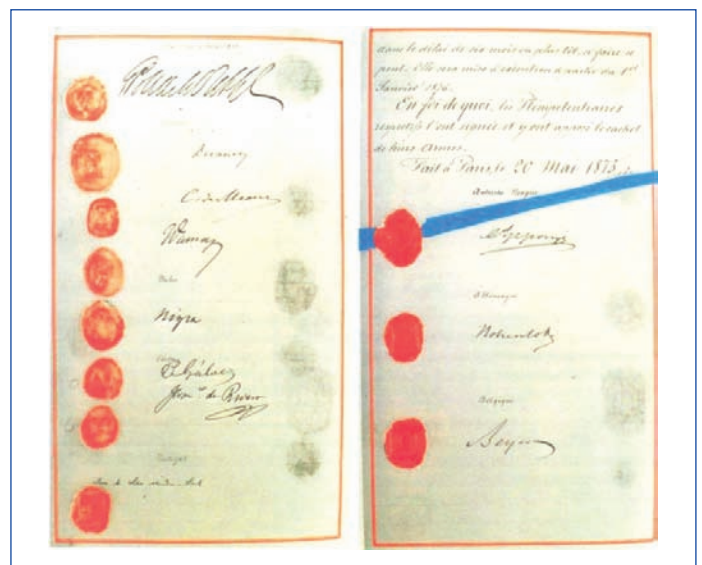 Decazes
C. de Meaux
Dumas
Italie
Nigra
P. Gálvez
de Rivero
Portugal
dans le délai de six mois ou plus tôt, si faire se
peut. Elle sera mise à exécution à partir du 1er
Janvier 1876.
En foi de quoi, les Plénipotentiaires
respectifs l'ont signée et y ont apposé le cachet
de leurs armes.
Fait à Paris, le 20 Mai 1875.
Autriche Hongrie
Apponyi
Allemagne
Hohenlohe
Belgique
Beyens